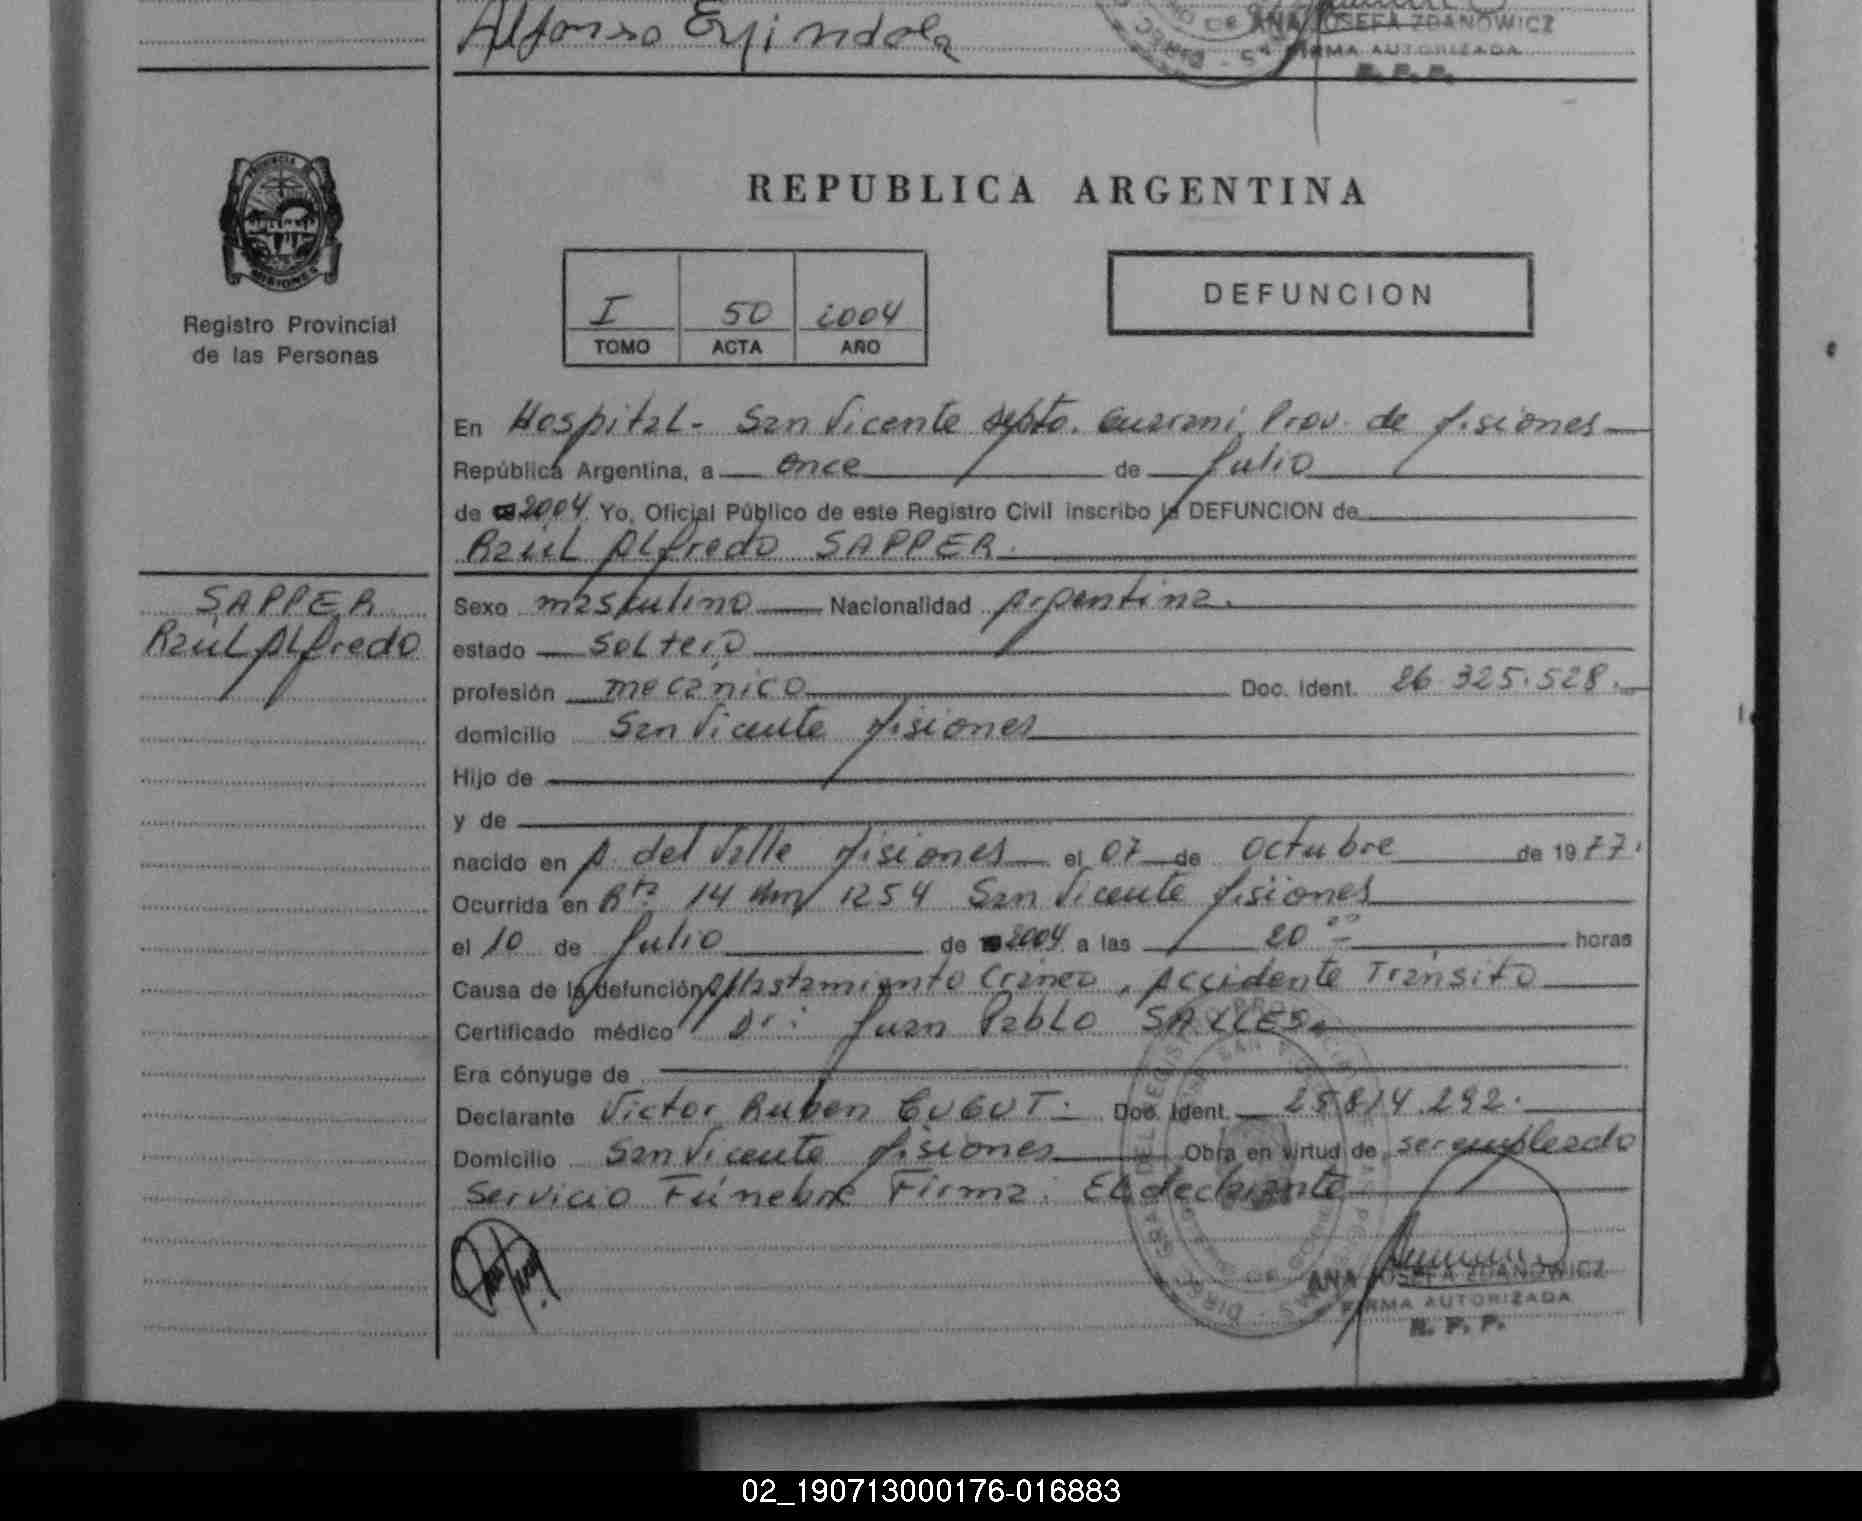 Alfonso Espindola
ANA JOSEFA ZDANOWICZ
FIRMA AUTORIZADA
R. P. P.
PROVINCIA
MISIONES
Registro Provincial
de las Personas
REPUBLICA ARGENTINA
I 50 2004
TOMO ACTA AÑO
DEFUNCION
En Hospital - San Vicente Dpto. Guarani Prov. de Misiones
República Argentina, a once de Julio
de 2004 Yo, Oficial Público de este Registro Civil inscribo la DEFUNCION de
Raúl Alfredo SAPPER.
SAPPER
Raúl Alfredo
Sexo masculino Nacionalidad Argentina.
estado soltero
profesión mecanico Doc. Ident. 26.325.528.
domicilio San Vicente Misiones
Hijo de
y de
nacido en A. del Valle Misiones el 07 de octubre de 1977.
Ocurrida en Rta 14 Km 1254 San Vicente Misiones
el 10 de Julio de 2004 a las 20 00 horas
Causa de la defunción Aplastamiento Craneo, Accidente Transito
Certificado médico Dr: Juan Pablo SALLES.
Era cónyuge de
Declarante Victor Ruben CUGUT. Doc. Ident. 25.814.292.
Domicilio San Vicente Misiones Obra en virtud de ser empleado
Servicio Fúnebre Firma: El declarante
ANA JOSEFA ZDANOWICZ
FIRMA AUTORIZADA
R. P. P.
02_190713000176-016883